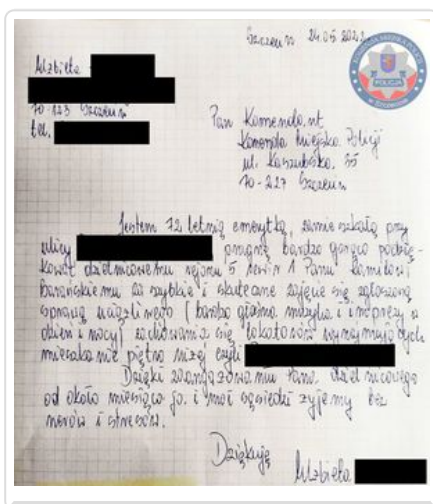 Szczecin 24.05.202
Elżbieta
70-123 Szczecin
tel.
KOMENDA MIEJSKA POLICJI
POLICJA
w Szczecinie
Pan Komendant
Komenda Miejska Policji
ul. Kaszubska 35
70-227 Szczecin
Jestem 72 letnią emerytką, zamieszkałą przy
ulicy pragnę bardzo gorąco podzię-
kować dzielnicowemu rejonu 5 rewir 1 Panu Kamilowi
Barańskiemu za szybkie i skuteczne zajęcie się zgłoszoną
sprawą uciążliwego (bardzo głośna muzyka i imprezy w
dzień i nocy) zachowania się lokatorów wynajmujących
mieszkanie piętro niżej czyli
Dzięki zaangażowaniu Pana dzielnicowego
od około miesiąca ja i moi sąsiedzi żyjemy bez
nerwów i stresów.
Dziękuję
Elżbieta